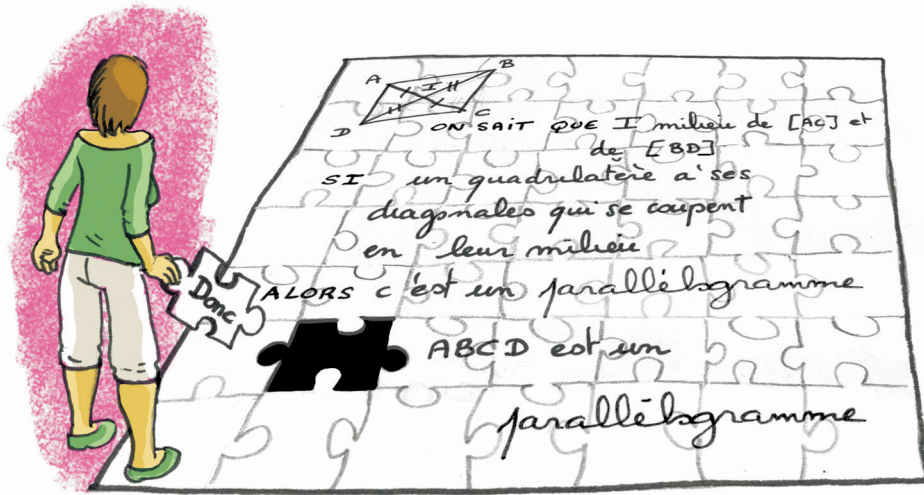 B
A
I
C
D
ON SAIT QUE I milieu de [AC] et
de [BD]
SI un quadrilatère a ses
diagonales qui se coupent
en leur milieu
Donc
ALORS c'est un parallélogramme
ABCD est un
parallélogramme